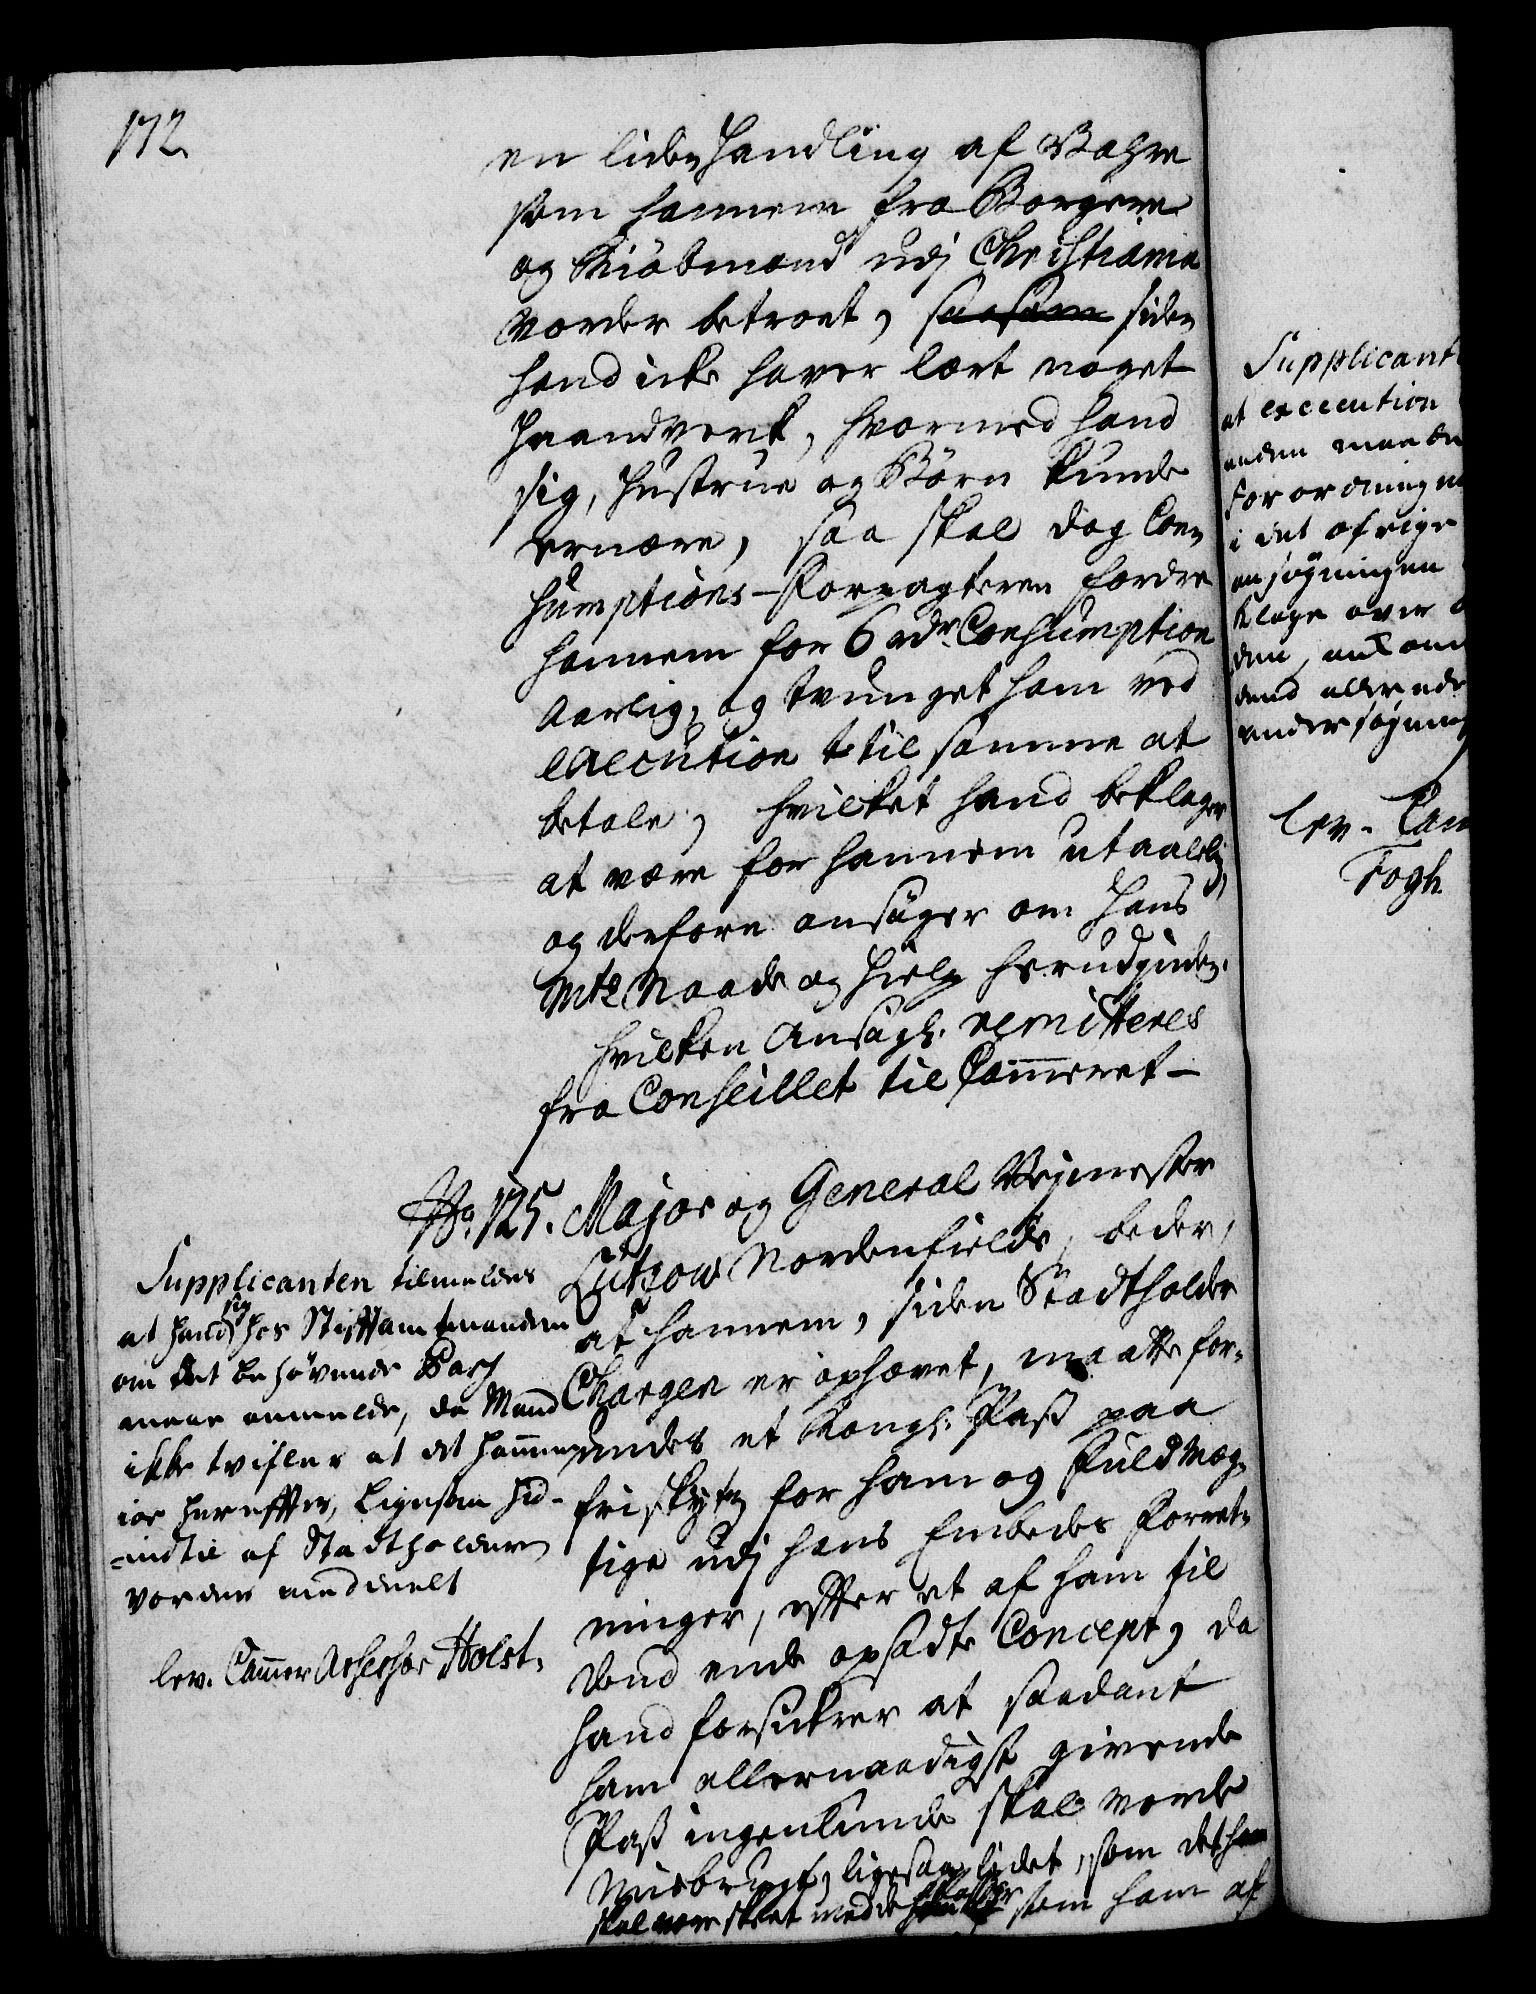 172
en liden Handling af Vahre
som hannem fra Borgere
og Kiöbmænd udj Christiania
vorder betroet, saasom siden
hand icke haver lært noget
Haandverk, hvormed hand
sig, Hustrue og Börn kunde
ernære, saa skal dog Con-
sumptions-Forpagteren fordre
hannem for 6 rdr. Consumption
Aarlig, og tvunget ham ved
execution til samme at
betale, hvilket hand beklager
at være for hannem utaalelig,
og derfore ansöger om Hans
Mts Naade og Hielp herudjnden.
hvilken Ansögn. remitteres
fra Conseillet til Cammeret-
No. 125. Major og General Veymester
Lützow Nordenfields, beder,
at hannem, siden Stadtholder
Chargen er ophævet, maatte for-
undes et Kongl. Pass paa
friskyds for ham og Fuldmæg-
tige udj hans Embedes Forret-
ninger, efter et af ham til
dend ende opsadte Concept, da
hand forsikrer at saadant
ham allernaadigst givende
Pass ingenlunde skal vorde
misbrugt, ligesaa lidet, som det han
skal være skeet med de som ham af
Supplicanten tilmeldes
at hand sig hos Stiftamtmanden
om det behövende Pass
maae anmelde, da Mand
ikke tvifler at det hannem
jo herefter, ligesaa hid-
indtil af Stadtholderen
vorder meddeelt
lev. Cammer Assessor Holst.
Supplicant
at execution
anden maade
Forordningen
i det öfrige
ansögningen
Klage over
den, ank om
dend allerede
undersögning
lev. Cam
Fogh